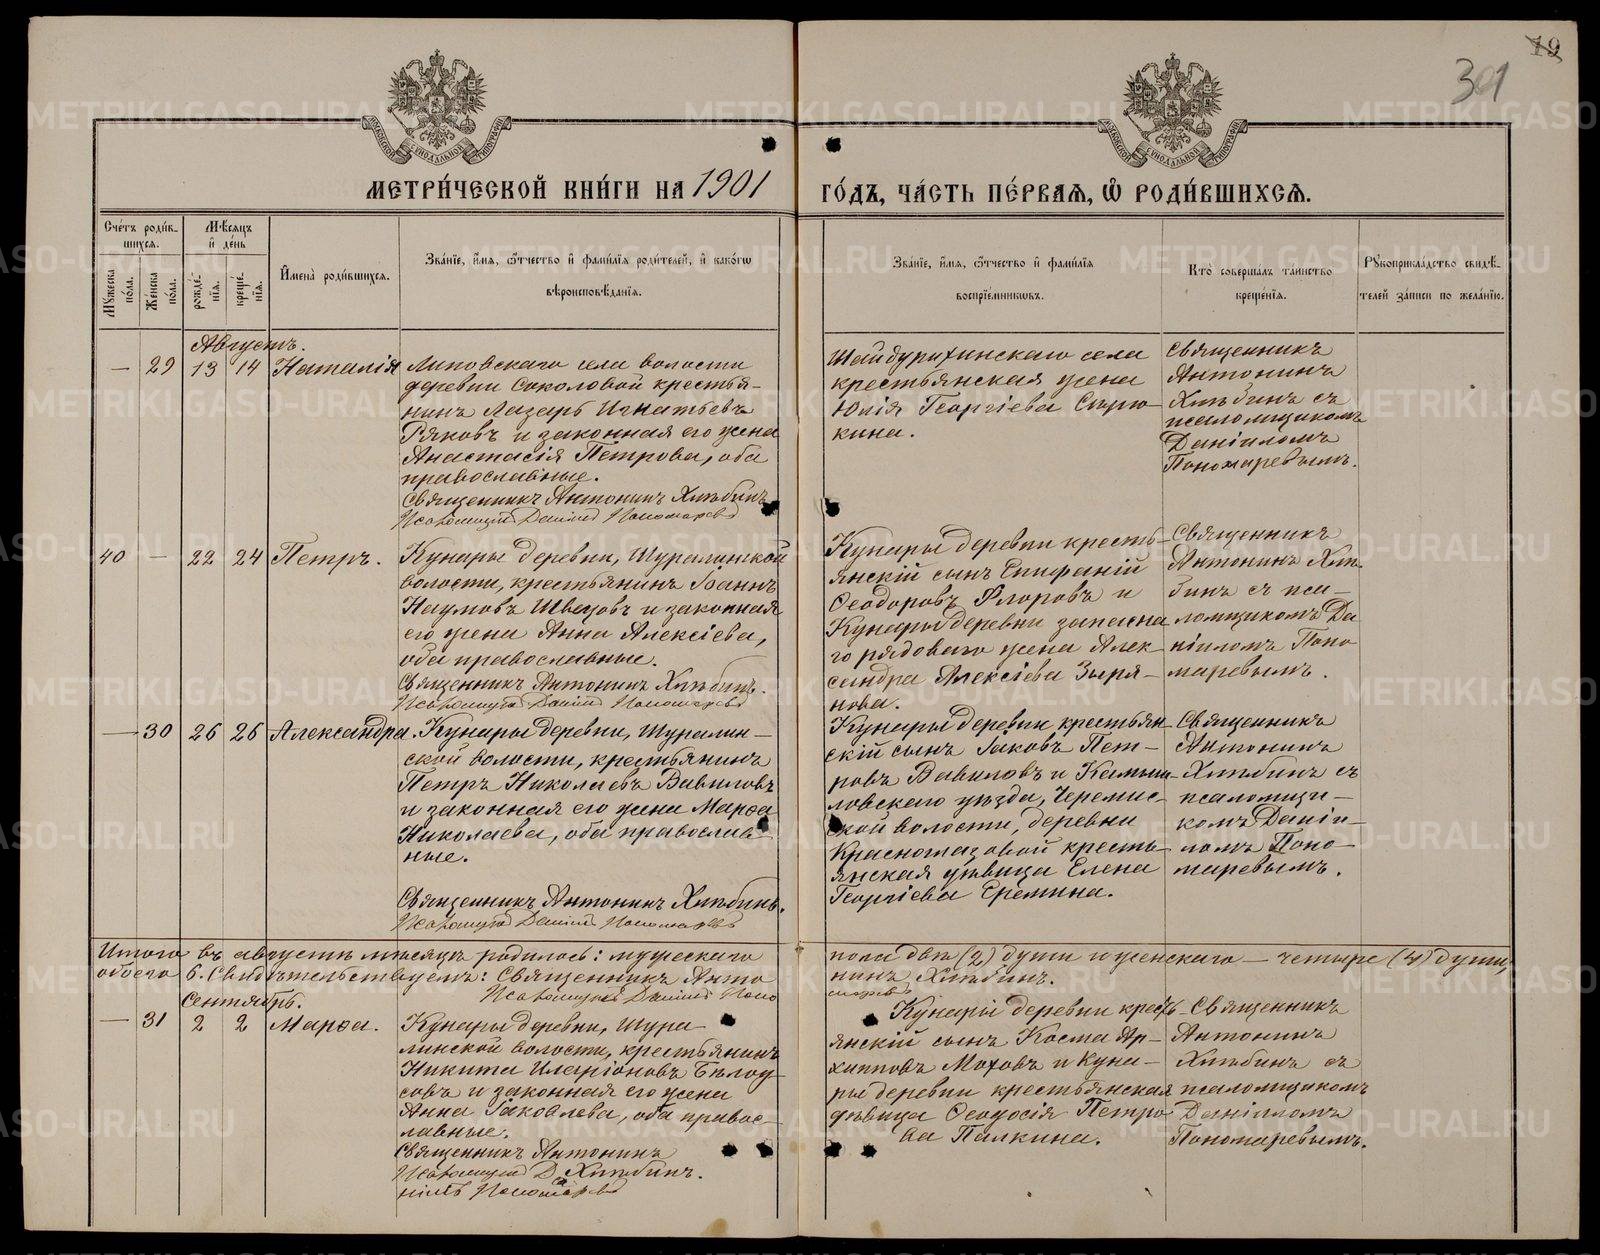 19
301
МОСКОВСКОЙ СѴНОДАЛЬНОЙ ТИПОГРАФІИ
МОСКОВСКОЙ СѴНОДАЛЬНОЙ ТИПОГРАФІИ
МЕТРИ́ЧЕСКОЙ КНИ́ГИ НА 1901
ГО́ДЪ, ЧА́СТЬ ПЕ́РВАѦ, Ѡ҆ РОДИ́ВШИХСѦ.
Сче́тъ роди́в-
шихся.
Мꙋжеска по́ла.
Же́нска по́ла.
Мѣ́сяцъ
и҆ де́нь
рожде́-
нїя.
креще́-
нїя.
И҆мена̀ роди́вшихся.
Зва́нїе, и҆́мя, ѻ҆́тчество и҆ фами́лїя роди́телей, и҆ како́гѡ
вѣроисповѣ́данїя.
Зва́нїе, и҆́мя, ѻ҆́тчество и҆ фами́лїя
воспрїе́мниковъ.
Кто̀ соверша́лъ та́инство
креще́нїя.
Рꙋкоприкла́дство свидѣ́-
телей за́писи по жела́нїю.
Августъ.
— 29 13 14 Наталія
Липовскаго села волости
деревни Соколовой крестья-
нинъ Лазарь Игнатьевъ
Ряковъ и законная его жена
Анастасія Петрова, оба
православные.
Священникъ Антонинъ Хлѣбинъ
Псаломщикъ Даніилъ Пономаревъ
Шайдурихинскаго села
крестьянская жена
Юлія Георгіева Сырю-
кина.
Священникъ
Антонинъ
Хлѣбинъ съ
псаломщикомъ
Даніиломъ
Пономаревымъ.
40 — 22 24 Петръ.
Кунары деревни, Шуралинской
волости, крестьянинъ Іоаннъ
Наумовъ Швецовъ и законная
его жена Анна Алексіева,
оба православные.
Священникъ Антонинъ Хлѣбинъ.
Псаломщикъ Даніилъ Пономаревъ
Кунары деревни кресть-
янскій сынъ Епифаній
Ѳеодоровъ Флоровъ и
Кунары деревни запасна
го рядоваго жена Алек-
сандра Алексіева Зыря-
нова.
Священникъ
Антонинъ Хлѣ-
бинъ съ пса-
ломщикомъ Да
ніиломъ Поно
маревымъ.
— 30 26 26 Александра
Кунары деревни, Шуралин-
ской волости, крестьянинъ
Петръ Николаевъ Вавиловъ
и законная его жена Марѳа
Николаева, оба православ-
ные.
Священникъ Антонинъ Хлѣбинъ.
Псаломщикъ Даніилъ Пономаревъ
Кунары деревни крестьян
скій сынъ Іаковъ Пет-
ровъ Вавиловъ и Камыш-
ловскаго уѣзда, Черемис-
ской волости, деревни
Красноглазовой кресть-
янская дѣвица Елена
Георгіева Еремина.
Священникъ
Антонинъ
Хлѣбинъ съ
псаломщи-
комъ Даніи-
ломъ Поно-
маревымъ.
Итого въ августѣ мѣсяцѣ родилось: мужескаго пола двѣ (2) души и женскаго — четыре (4) души,
обоего 6. Свидѣтельствуемъ: Священникъ Антонинъ Хлѣбинъ.
Псаломщикъ Даніилъ Пономаревъ
Сентябрь.
— 31 2 2 Марѳа.
Кунары деревни, Шура-
линской волости, крестьянинъ
Никита Иларіоновъ Бѣлоу-
совъ и законная его жена
Анна Іаковлева, оба правос-
лавные.
Священникъ Антонинъ
Хлѣбинъ.
Псаломщикъ Да
ніилъ Пономаревъ
Кунары деревни кресть-
янскій сынъ Косма Ар-
хиповъ Моховъ и Куна-
ры деревни крестьянская
дѣвица Ѳеодосія Петро
ва Палкина.
Священникъ
Антонинъ
Хлѣбинъ съ
псаломщикомъ
Даніиломъ
Пономаревымъ.
METRIKI.GASO-URAL.RU